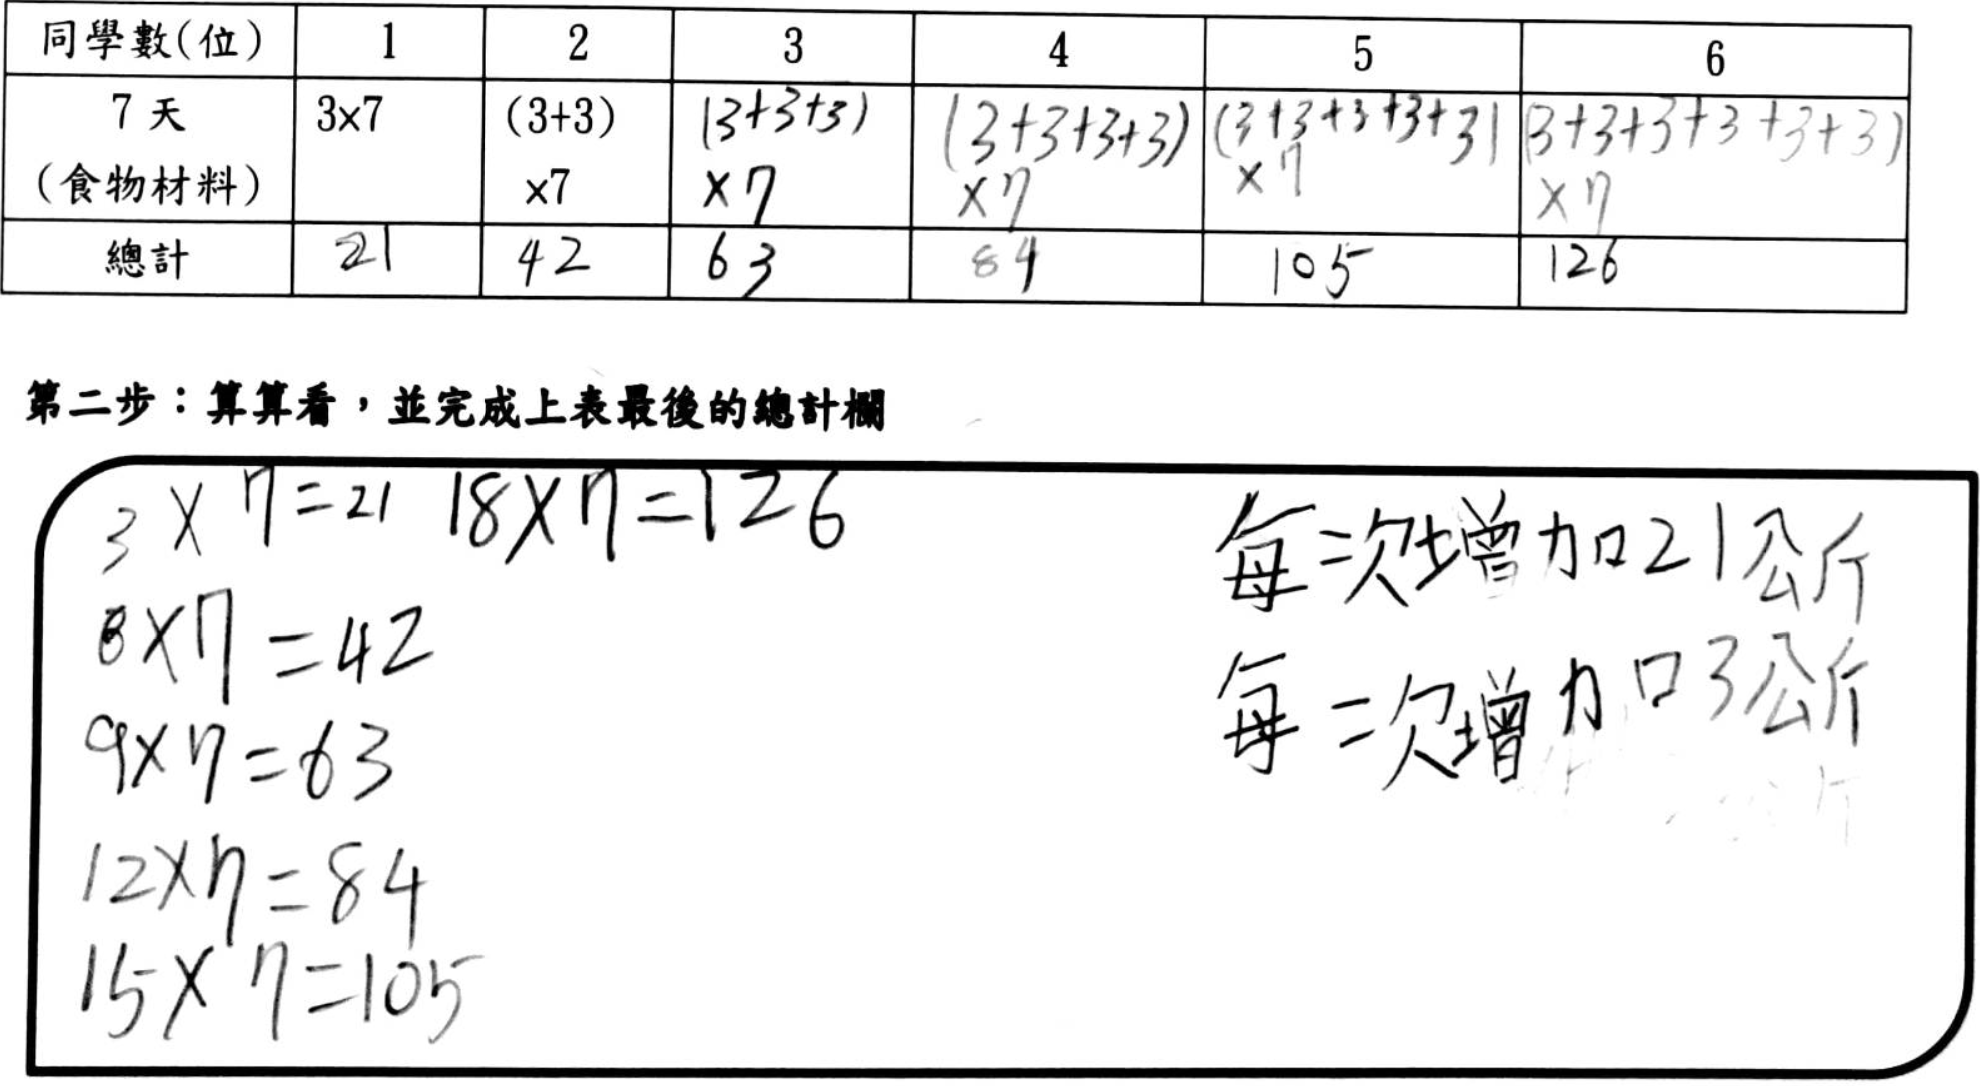 同學數(位) 1 2 3 4 5 6
7天 3x7 (3+3) (3+3+3) (3+3+3+3) (3+3+3+3+3) (3+3+3+3+3+3)
(食物材料) x7 x7 x7 x7 x7
總計 21 42 63 84 105 126
第二步：算算看，並完成上表最後的總計欄
3x7=21 18x7=126
x7=42
9x7=63
12x7=84
15x7=105
每次增加21公斤
每次增加3公斤